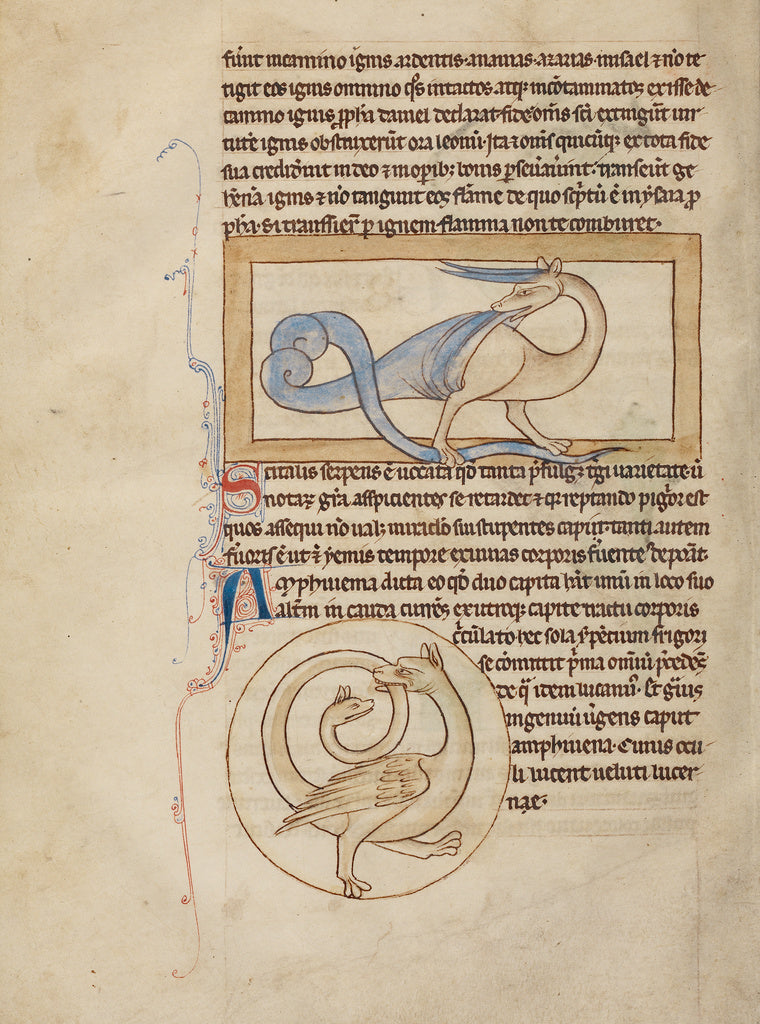 fuint incamino ignis ardentis. ananias. azarias. misael ⁊ nō te
tigit eos ignis omnino qͥs intactos atqꝫ incōtaminatos exisse de
camino ignis ꝓph̄a daniel declarat. fide om̄s sc̄i extinxer̄t uir
tutē ignis obstruxer̄t ora leonū. Ita ⁊ om̄s quicūqꝫ ex tota fide
sua credider̄t in deo ⁊ in opib; bonis ꝑseuauer̄t. transeūt ge
hennā ignis ⁊ nō tangunt eos flāme de quo scͥptū ē in ysaia ꝓ
ph̄a. Si transier̄ ꝑ ignem flamma non te comburet.
Scitalis serpens ē uocata qd̄ tanta p̄fulget tͥgi uarietate ut
notaꝝ gr̄a aspicientes se retardet ⁊ qꝛ reptando pigͦr est
quos assequi nō ual; miraclo sui stupentes capit. tanti autem
feruoris ē ut ⁊ hyemis tempore exuuias corporis feruentē deponat.
Amphiuena dicta eo qd̄ duo capita hāt unū in loco suo
altm̄ in cauda currēs ex utroqꝫ capite tractu corporis
circulato. hec sola serpētium frigori
se cōmittit pͥma omniū ꝓcedēs
de qͣ idem lucanus. Et gͣuis
ingeminū uergens caput
amphiuena. Cuius ocu
li lucent ueluti lucer
nae.